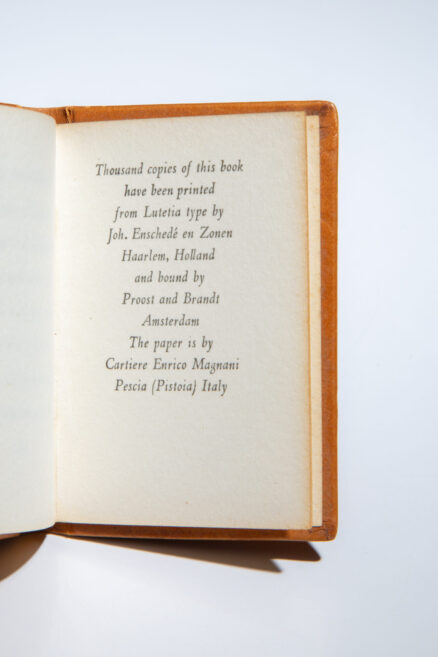 Thousand copies of this book
have been printed
from Lutetia type by
Joh. Enschedé en Zonen
Haarlem, Holland
and bound by
Proost and Brandt
Amsterdam
The paper is by
Cartiere Enrico Magnani
Pescia (Pistoia) Italy